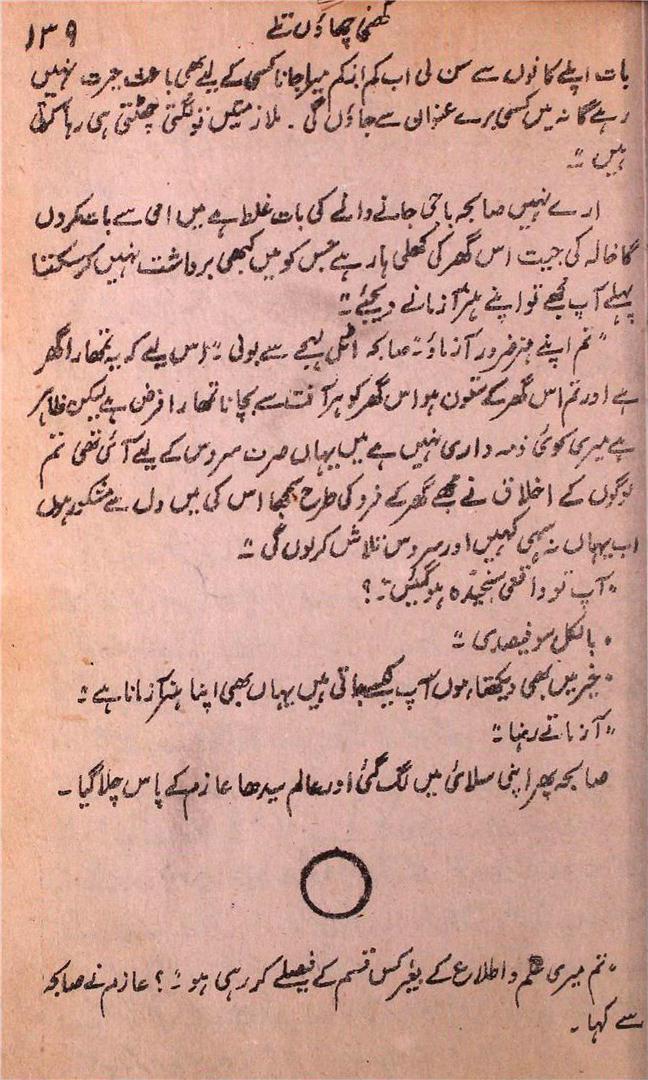 گھنی چھاؤں تلے
۱۳۹
بات اپنے کانوں سے سن لی اب کم از کم میرا جانا کسی کے لیے بھی باعث حیرت نہیں
رہے گا نہ میں کسی برے عنوان سے جاؤں گی ۔ ملازمتیں تو لگتی چھٹتی ہی رہا کرتی
ہیں ۔"
ارے نہیں صابحہ باجی جانے والے کی بات غلط ہے میں امی سے بات کردوں
گا خالہ کی جیت اس گھر کی کھلی ہار ہے جس کو میں کبھی برداشت نہیں کرسکتا
پہلے آپ مجھے تو اپنے ہنر آزمانے دیجئے ۔"
"تم اپنے ہنر ضرور آزماؤ ۔" صابحہ اٹل لہجے سے بولی ۔" اس لیے کہ یہ تمھارا گھر
ہے اور تم اس گھر کے ستون ہو اس گھر کو ہر آفت سے بچانا تمھارا فرض ہے لیکن ظاہر
ہے میری کوئی ذمہ داری نہیں ہے میں یہاں صرف سروس کے لیے آئی تھی تم
لوگوں کے اخلاق نے مجھے گھر کے فرد کی طرح سمجھا اس کی میں دل سے مشکور ہوں
اب یہاں نہ سہی کہیں اور سروس تلاش کرلوں گی ۔"
"آپ تو واقعی سنجیدہ ہوگئیں ۔"؟
"بالکل سو فیصدی ۔"
"خیر میں بھی دیکھتا ہوں آپ کیسے جاتی ہیں یہاں بھی اپنا ہنر آزمانا ہے ۔"
"آزماتے رہنا ۔"
صابحہ پھر اپنی سلائی میں لگ گئی اور عالم سیدھا عازم کے پاس چلا گیا ۔
"تم میری علم و اطلاع کے بغیر کس قسم کے فیصلے کر رہی ہو ۔"؟ عازم نے صابحہ
سے کہا ۔